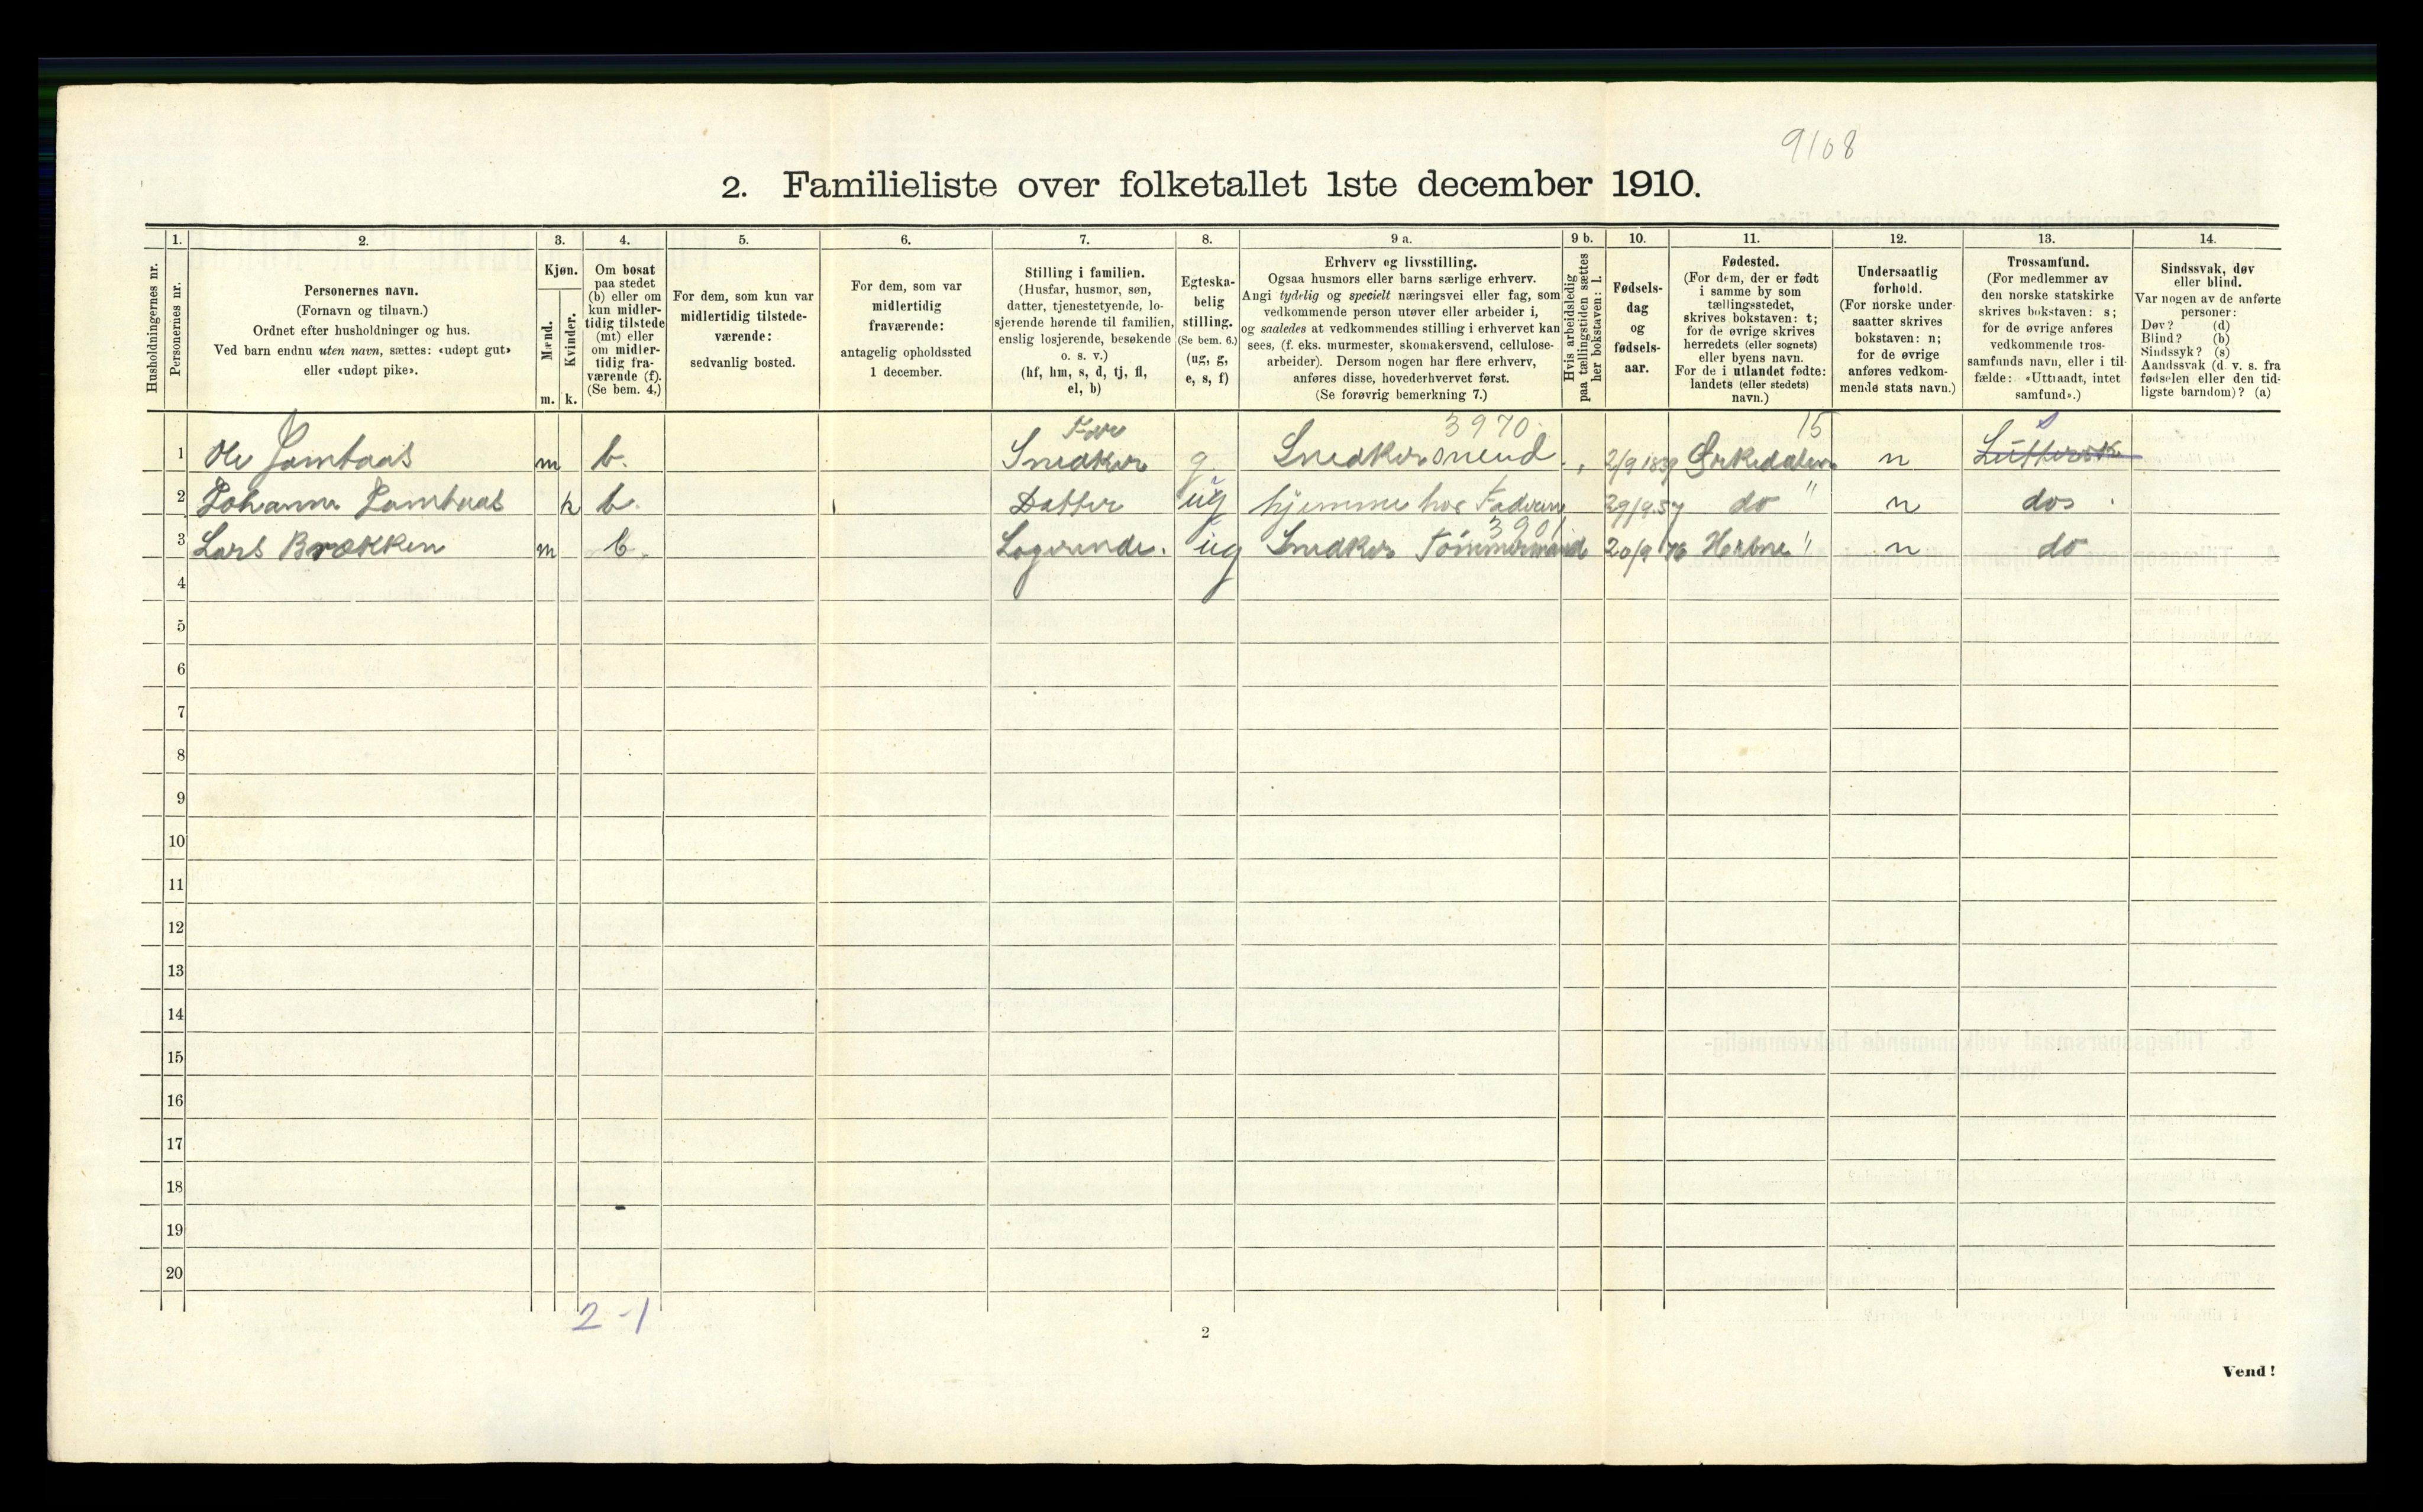 9108
2. Familieliste over folketallet 1ste december 1910.
Husholdningernes nr.
1.
Personernes nr.
2.
Personernes navn.
(Fornavn og tilnavn.)
Ordnet efter husholdninger og hus.
Ved barn endnu uten navn, sættes: «udøpt gut»
eller «udøpt pike».
3.
Kjøn.
Mænd.
Kvinder.
m. k.
4.
Om bosat
paa stedet
(b) eller om
kun midler-
tidig tilstede
(mt) eller
om midler-
tidig fra-
værende (f).
(Se bem. 4.)
5.
For dem, som kun var
midlertidig tilstede-
værende:
sedvanlig bosted.
6.
For dem, som var
midlertidig
fraværende:
antagelig opholdssted
1 december.
7.
Stilling i familien.
(Husfar, husmor, søn,
datter, tjenestetyende, lo-
sjerende hørende til familien,
enslig losjerende, besøkende
o. s. v.)
(hf, hm, s, d, tj, fl,
el, b)
8.
Egteska-
belig
stilling.
(Se bem. 6.)
(ug, g,
e, s, f)
9 a.
Erhverv og livsstilling.
Ogsaa husmors eller barns særlige erhverv.
Angi tydelig og specielt næringsvei eller fag, som
vedkommende person utøver eller arbeider i,
og saaledes at vedkommendes stilling i erhvervet kan
sees, (f. eks. murmester, skomakersvend, cellulose-
arbeider). Dersom nogen har flere erhverv,
anføres disse, hovederhvervet først.
(Se forøvrig bemerkning 7.)
9 b.
Hvis arbeidsledig
paa tællingstiden sættes
her bokstaven: l.
10.
Fødsels-
dag
og
fødsels-
aar.
11.
Fødested.
(For dem, der er født
i samme by som
tællingsstedet,
skrives bokstaven: t;
for de øvrige skrives
herredets (eller sognets)
eller byens navn.
For de i utlandet fødte:
landets (eller stedets)
navn.)
12.
Undersaatlig
forhold.
(For norske under-
saatter skrives
bokstaven: n;
for de øvrige
anføres vedkom-
mende stats navn.)
13.
Trossamfund.
(For medlemmer av
den norske statskirke
skrives bokstaven: s;
for de øvrige anføres
vedkommende tros-
samfunds navn, eller i til-
fælde: «Uttraadt, intet
samfund».)
14.
Sindssvak, døv
eller blind.
Var nogen av de anførte
personer:
Døv? (d)
Blind? (b)
Sindssyk? (s)
Aandssvak (d. v. s. fra
fødselen eller den tid-
ligste barndom)? (a)
Far 3970. 15 s
1 Ole m b. Snedker g Snedkersvend 2/9 1839 Ørkedalen n Luthersk
2 Johanna k b. Datter ug hjemme hos Faderen 29/9.57 do " n do s
3901
3 Lars Brækken m b. Logerende. ug Snedker Tömmermand 20/9 76 Hevne " n do
4
5
6
7
8
9
10
11
12
13
14
15
16
17
18
19
20
2-1
2
Vend!